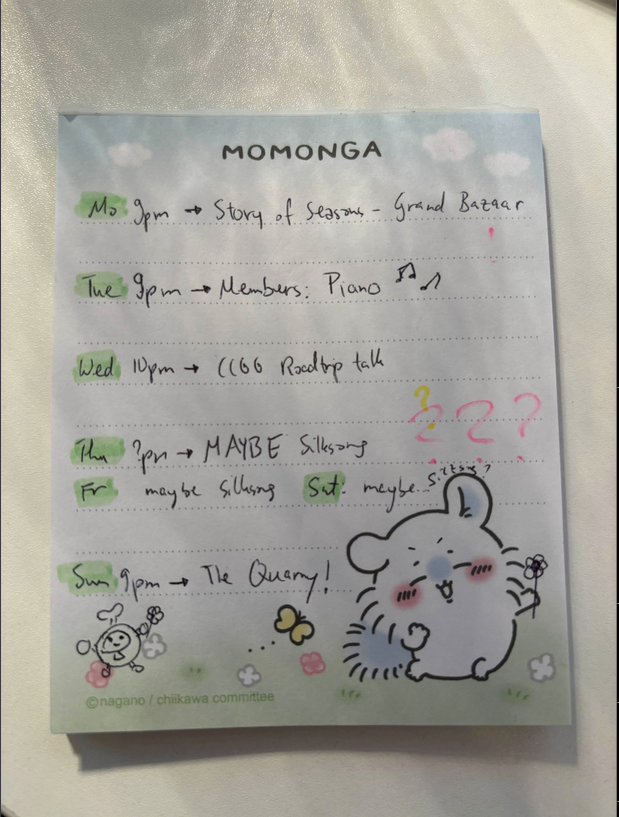 MOMONGA
Mo 9pm → Story of Seasons - Grand Bazaar
!
Tue 9pm → Members: Piano ♫ ♪
Wed 10pm → CCGG Roadtrip talk
? ? ? ?
Thu ?pm → MAYBE Silksong
Fr maybe silksong Sat: maybe.. Silksong?
Sun 9pm → The Quarry!
©nagano / chiikawa committee